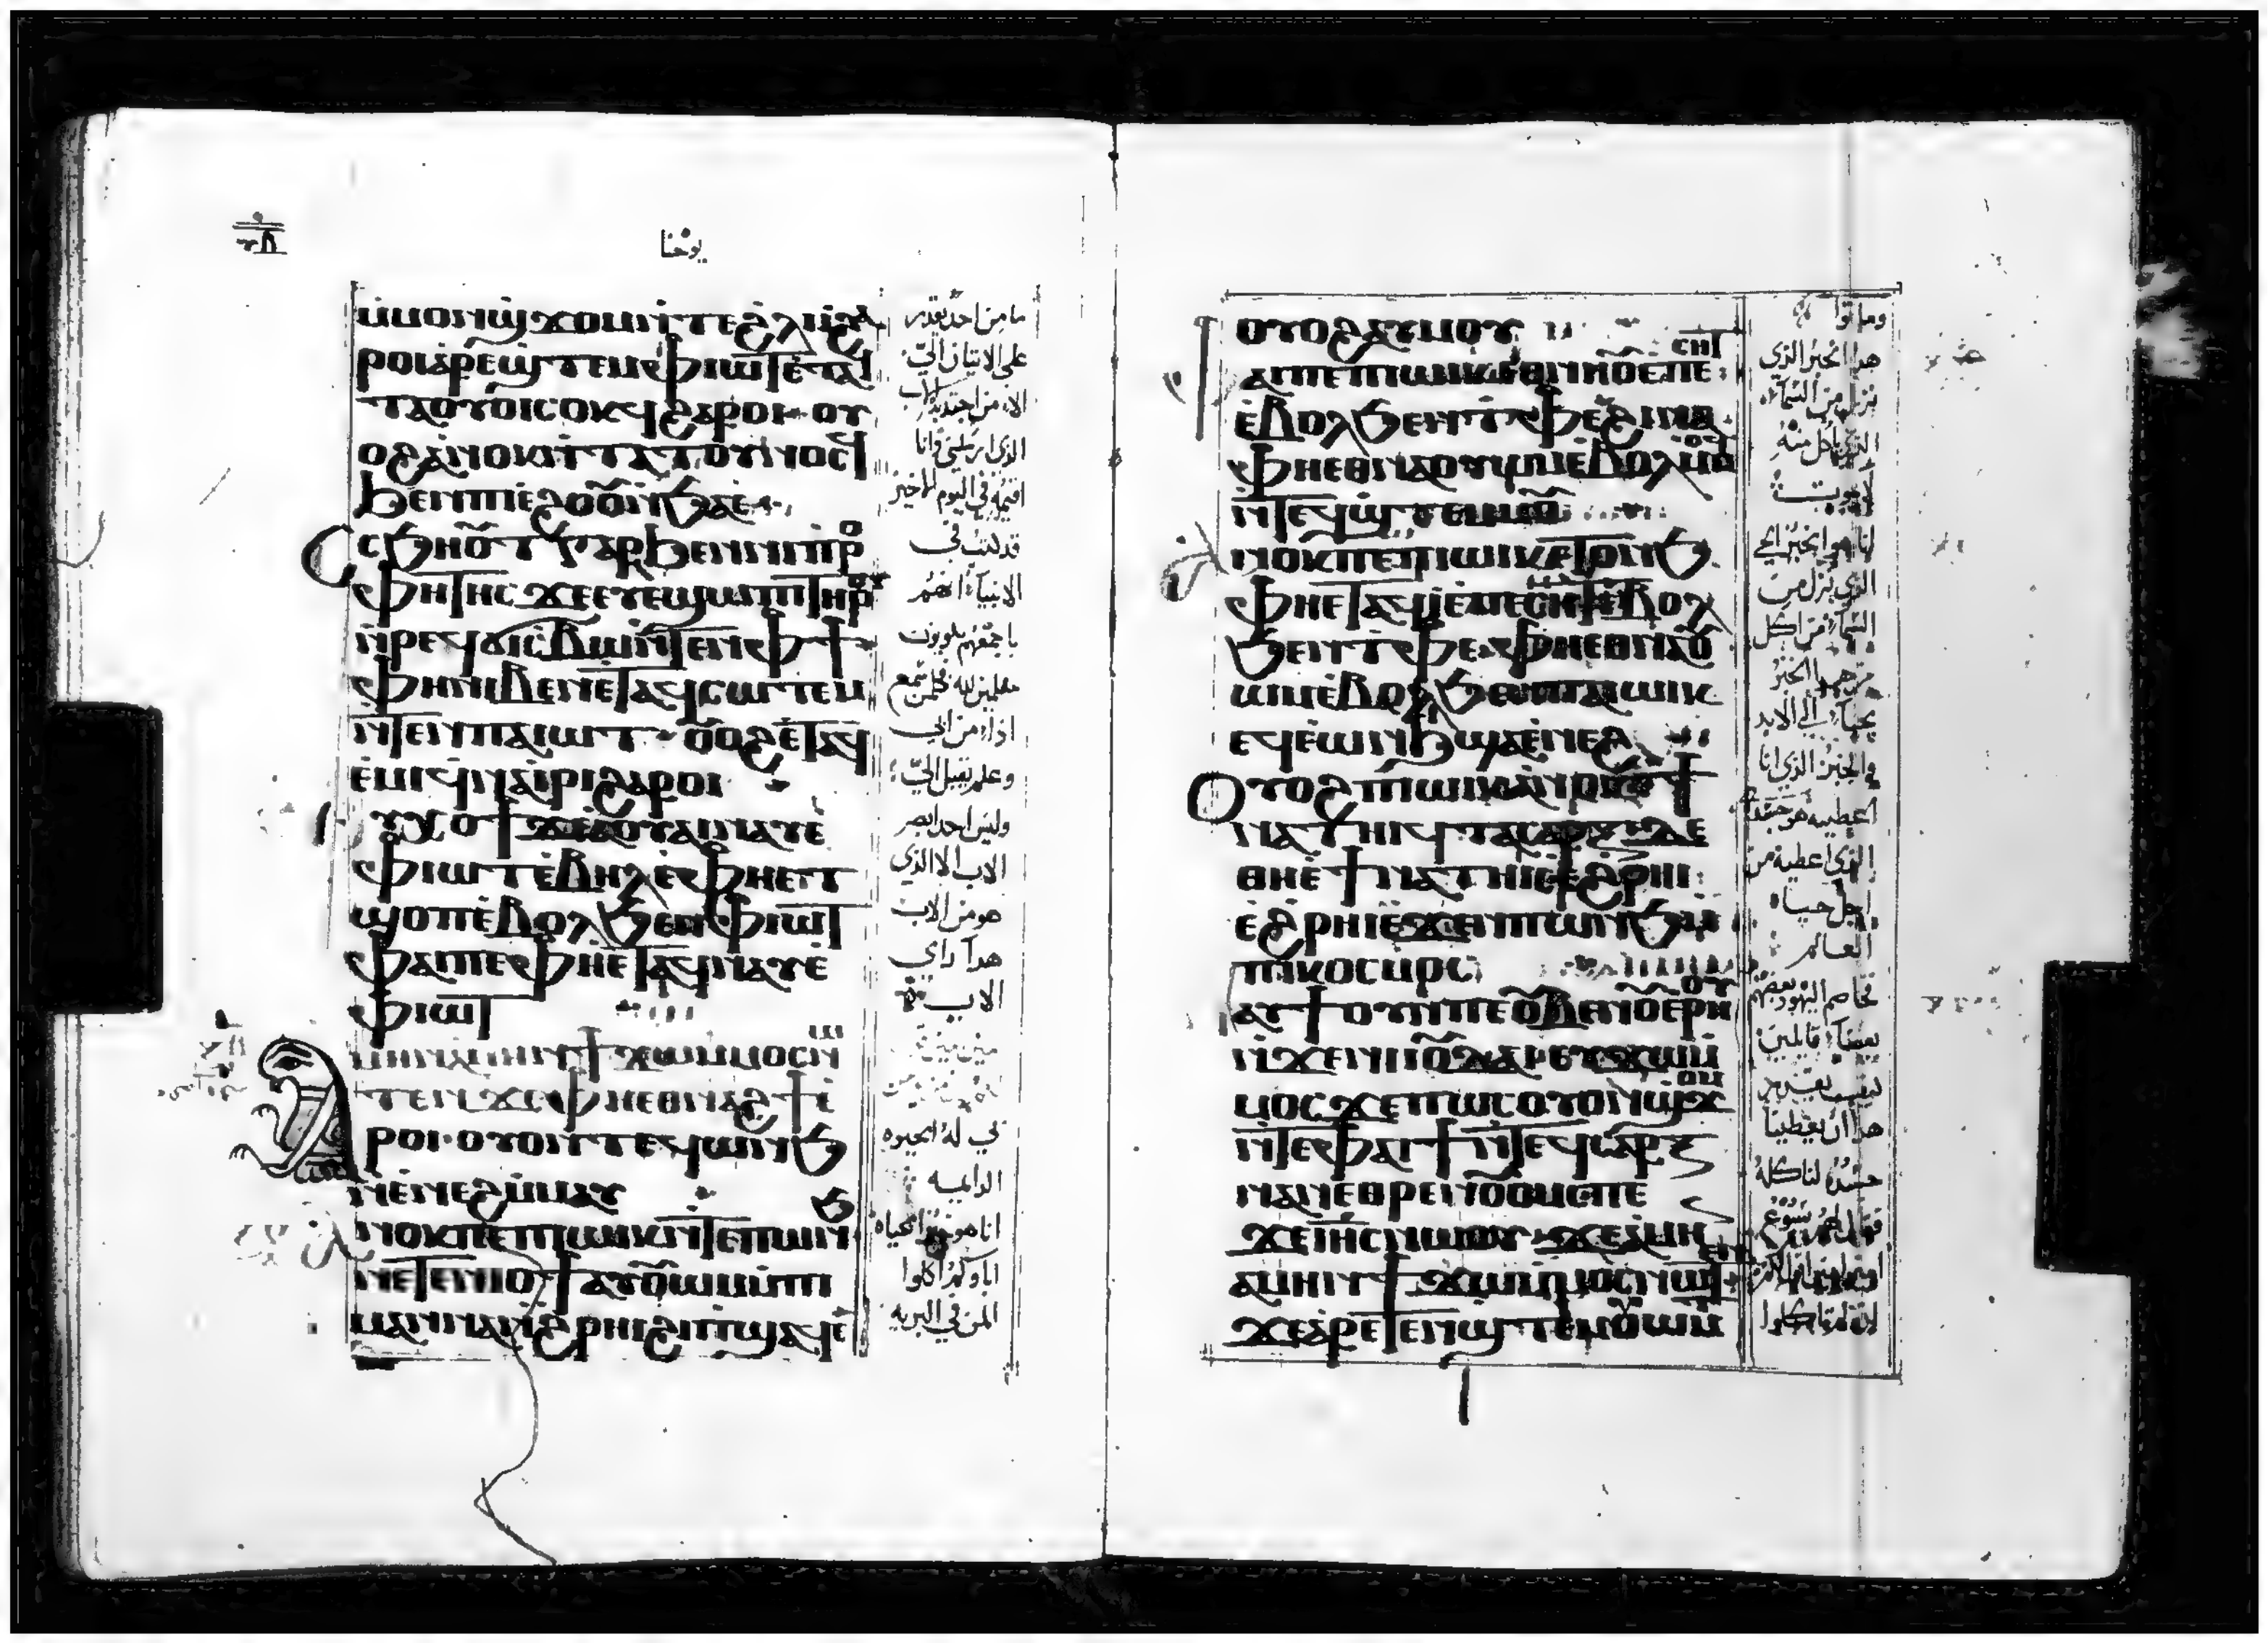 يوحنا
ⲙⲙⲟⲛϣϫⲟⲙⲛⲧⲉϩⲗⲓⲓϩⲁ
ⲣⲟⲓⲁⲣⲉϣⲧⲉⲙⲫⲓⲱⲧⲉⲧⲁϥ
ⲧⲁⲟⲩⲟⲓⲥⲟⲕϥϩⲁⲣⲟⲓ ⲟⲩ
ⲟϩⲁⲛⲟⲕⲛⲧⲁⲧⲟⲩⲛⲟⲥϥ
ϧⲉⲛⲡⲓⲉϩⲟⲟⲩⲛϧⲁⲉ
ⲥϧⲏⲟⲩⲧⲅⲁⲣϧⲉⲛⲛⲓⲡⲣⲟ
ⲫⲏⲧⲏⲥϫⲉⲉⲩⲉϣⲱⲡⲓⲧⲏⲣⲟⲩ
ⲛⲣⲉϥϭⲓⲥⲃⲱⲛⲧⲉⲛⲫϯ
ⲫⲏⲛⲓⲃⲉⲛⲉⲧⲁϥⲥⲱⲧⲉⲙ
ⲛⲧⲉⲛⲡⲁⲓⲱⲧ ⲟⲩⲟϩⲉⲧⲁϥ
ⲉⲙⲓϥⲛⲁⲓⲣⲓϩⲁⲣⲟⲓ
ⲟⲩⲭⲟⲧⲓϫⲉⲁⲟⲩⲁⲓⲛⲁⲩⲉ
ⲫⲓⲱⲧⲉⲃⲏⲗⲉⲫⲏⲉⲧ
ϣⲟⲡⲉⲃⲟⲗϧⲉⲛⲫⲓⲱⲧ
ⲫⲁⲓⲡⲉⲫⲏⲉⲧⲁϥⲛⲁⲩⲉ
ⲫⲓⲱⲧ
ⲁⲙⲏⲛⲁⲙⲏⲛϯϫⲱⲙⲙⲟⲥⲛⲱ
ⲧⲉⲛϫⲉⲫⲏⲉⲑⲛⲁϩϯⲉ
ⲣⲟⲓ ⲟⲩⲟⲛⲧⲉϥⲱⲛϧ
ⲛⲉⲛⲉϩⲙⲙⲁⲩ
ⲁⲛⲟⲕⲡⲉⲡⲱⲓⲕⲛⲧⲉⲡⲱⲛϧ
ⲛⲉⲧⲉⲛⲓⲟϯⲁⲩⲟⲩⲱⲙⲙⲡⲓ
ⲙⲁⲛⲛⲁⲓϩⲣⲏⲓϩⲓⲡϣⲁϥⲉ
ما من احد يقدر
على الاتيان اليّ
الا من اجتذبه الاب
الذي ارسلني وانا
اقيمه في اليوم الاخير
قد كتب في
الانبياء انهم
باجمعهم يكونون
معلمين لله فكل من سمع
اذا من ابي
وعلم يقبل اليّ
وليس احد ابصر
الاب الا الذي
هو من الاب
هذا راي
الاب
بي له الحيوه
الدايمه
انا هو خبز الحياه
اباوكم اكلوا
المن في البريه
ⲟⲩⲟϩⲁⲩⲙⲟⲩ
ⲫⲁⲓⲡⲉⲡⲓⲱⲓⲕⲉⲑⲛⲏⲟⲩⲉⲡⲉⲥⲏⲧ
ⲉⲃⲟⲗϧⲉⲛⲧⲫⲉϩⲓⲛⲁ
ⲫⲏⲉⲑⲛⲁⲟⲩⲱⲙⲉⲃⲟⲗⲙⲙⲟϥ
ⲛⲧⲉϥϣⲧⲉⲙⲙⲟⲩ
ⲁⲛⲟⲕⲡⲉⲡⲓⲱⲓⲕⲉⲧⲟⲛϧ
ⲫⲏⲉⲧⲁϥⲓⲉⲡⲉⲥⲏⲧⲉⲃⲟⲗ
ϧⲉⲛⲧⲫⲉ ⲫⲏⲉⲑⲛⲁⲟⲩ
ⲱⲙⲉⲃⲟⲗϧⲉⲛⲡⲁⲓⲱⲓⲕ
ⲉϥⲉⲱⲛϧϣⲁⲉⲛⲉϩ
ⲟⲩⲟϩⲡⲓⲱⲓⲕⲁⲛⲟⲕⲉϯ
ⲛⲁⲧⲏⲓϥⲧⲁⲥⲁⲣⲝⲧⲉ
ⲑⲏⲉϯⲛⲁⲧⲏⲓⲥⲉϩⲣⲏⲓ
ⲉϩⲣⲏⲓⲉϫⲉⲛⲡⲱⲛϧⲙ
ⲡⲓⲕⲟⲥⲙⲟⲥ
ⲛⲁⲩϯⲟⲩⲛⲡⲉⲟⲩⲃⲉⲛⲟⲩⲉⲣⲏⲟⲩ
ⲛϫⲉⲛⲓⲓⲟⲩⲇⲁⲓⲉⲩϫⲱⲙ
ⲙⲟⲥϫⲉⲡⲱⲥⲟⲩⲟⲛϣϫⲟⲙ
ⲛⲧⲉⲫⲁⲓϯⲛⲧⲉϥⲥⲁⲣⲝ
ⲛⲁⲛⲉⲑⲣⲉⲛⲟⲩⲟⲙⲥⲡⲉ
ϫⲉⲓⲏⲥⲛⲱⲟⲩ ϫⲉⲁⲙⲏⲛ
ⲁⲙⲏⲛϯϫⲱⲙⲙⲟⲥⲛⲱⲧⲉⲛ
ϫⲉⲁⲣⲉⲧⲉⲛϣⲧⲉⲙⲟⲩⲱⲙ
وماتوا
هذا الخبز الذي
ينزل من السماء
الذي ياكل منه
لا يموت
انا هو الخبز الحي
الذي نزل من
السماء من اكل
من هذا الخبز
يحيا الى الابد
والخبز الذي انا
اعطيه هو جسدي
الذي اعطيه من
اجل حياه
العالم
فخاصم اليهود بعضهم
بعضا قايلين
كيف يقدر
هذا ان يعطينا
جسده لناكله
فقال لهم يسوع